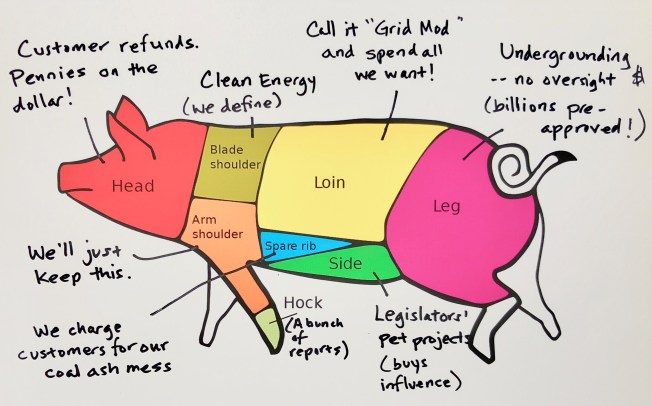 Customer refunds.
Pennies on the
dollar!
Clean Energy
(we define)
Call it "Grid Mod"
and spend all
we want!
Undergrounding
-- no oversight $
(billions pre-
approved!)
Head
Blade
shoulder
Loin
Leg
Arm
shoulder
Spare rib
Side
Hock
We'll just
keep this.
We charge
customers for our
coal ash mess
(A bunch
of
reports)
Legislators'
pet projects
(buys
influence)